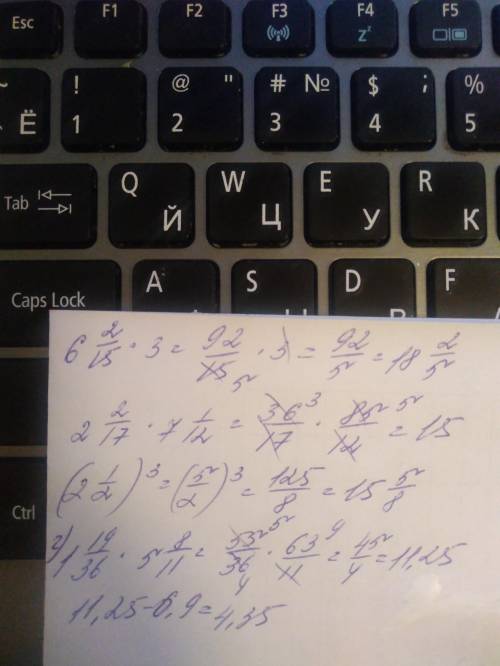 Esc F1 F2 F3 F4 F5
~ Ё ! 1 @ " 2 # № 3 $ ; 4 % 5
Tab Q Й W Ц E У R К
Caps Lock A S D F
Ctrl
6 2/15 · 3 = 92/15 5 · 3 = 92/5 = 18 2/5
2 2/17 · 7 1/12 = 36 3/17 · 85 5/12 = 15
(2 1/2)³ = (5/2)³ = 125/8 = 15 5/8
2) 1 19/36 · 5 8/11 = 55 5/36 4 · 63 9/11 = 45/4 = 11,25
11,25 - 6,9 = 4,35